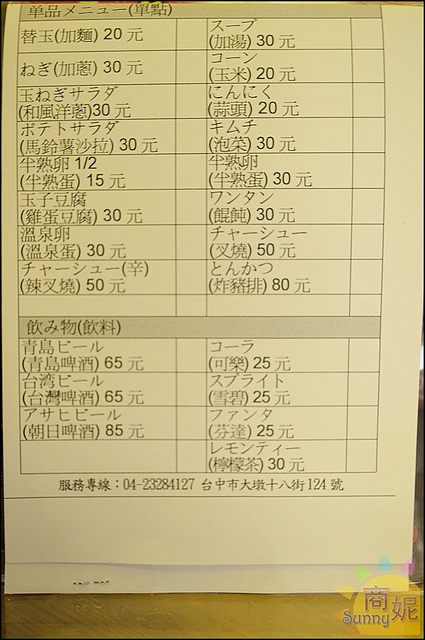 単品メニュー(單點)
替玉(加麵) 20 元
スープ
(加湯) 30 元
ねぎ(加蔥) 30 元
コーン
(玉米) 20 元
玉ねぎサラダ
(和風洋蔥)30 元
にんにく
(蒜頭) 20 元
ポテトサラダ
(馬鈴薯沙拉) 30 元
キムチ
(泡菜) 30 元
半熟卵 1/2
(半熟蛋) 15 元
半熟卵
(半熟蛋) 30 元
玉子豆腐
(雞蛋豆腐) 30 元
ワンタン
(餛飩) 30 元
溫泉卵
(溫泉蛋) 30 元
チャーシュー
(叉燒) 50 元
チャーシュー(辛)
(辣叉燒) 50 元
とんかつ
(炸豬排) 80 元
飲み物(飲料)
青島ビール
(青島啤酒) 65 元
コーラ
(可樂) 25 元
台湾ビール
(台灣啤酒) 65 元
スプライト
(雪碧) 25 元
アサヒビール
(朝日啤酒) 85 元
ファンタ
(芬達) 25 元
レモンティー
(檸檬茶) 30 元
服務專線：04-23284127 台中市大墩十八街 124 號
商妮
Sunny